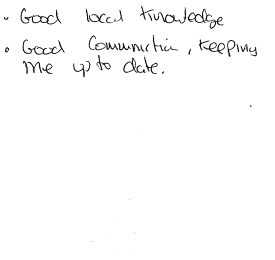 • Good local knowledge
• Good Communication, keeping
me up to date.